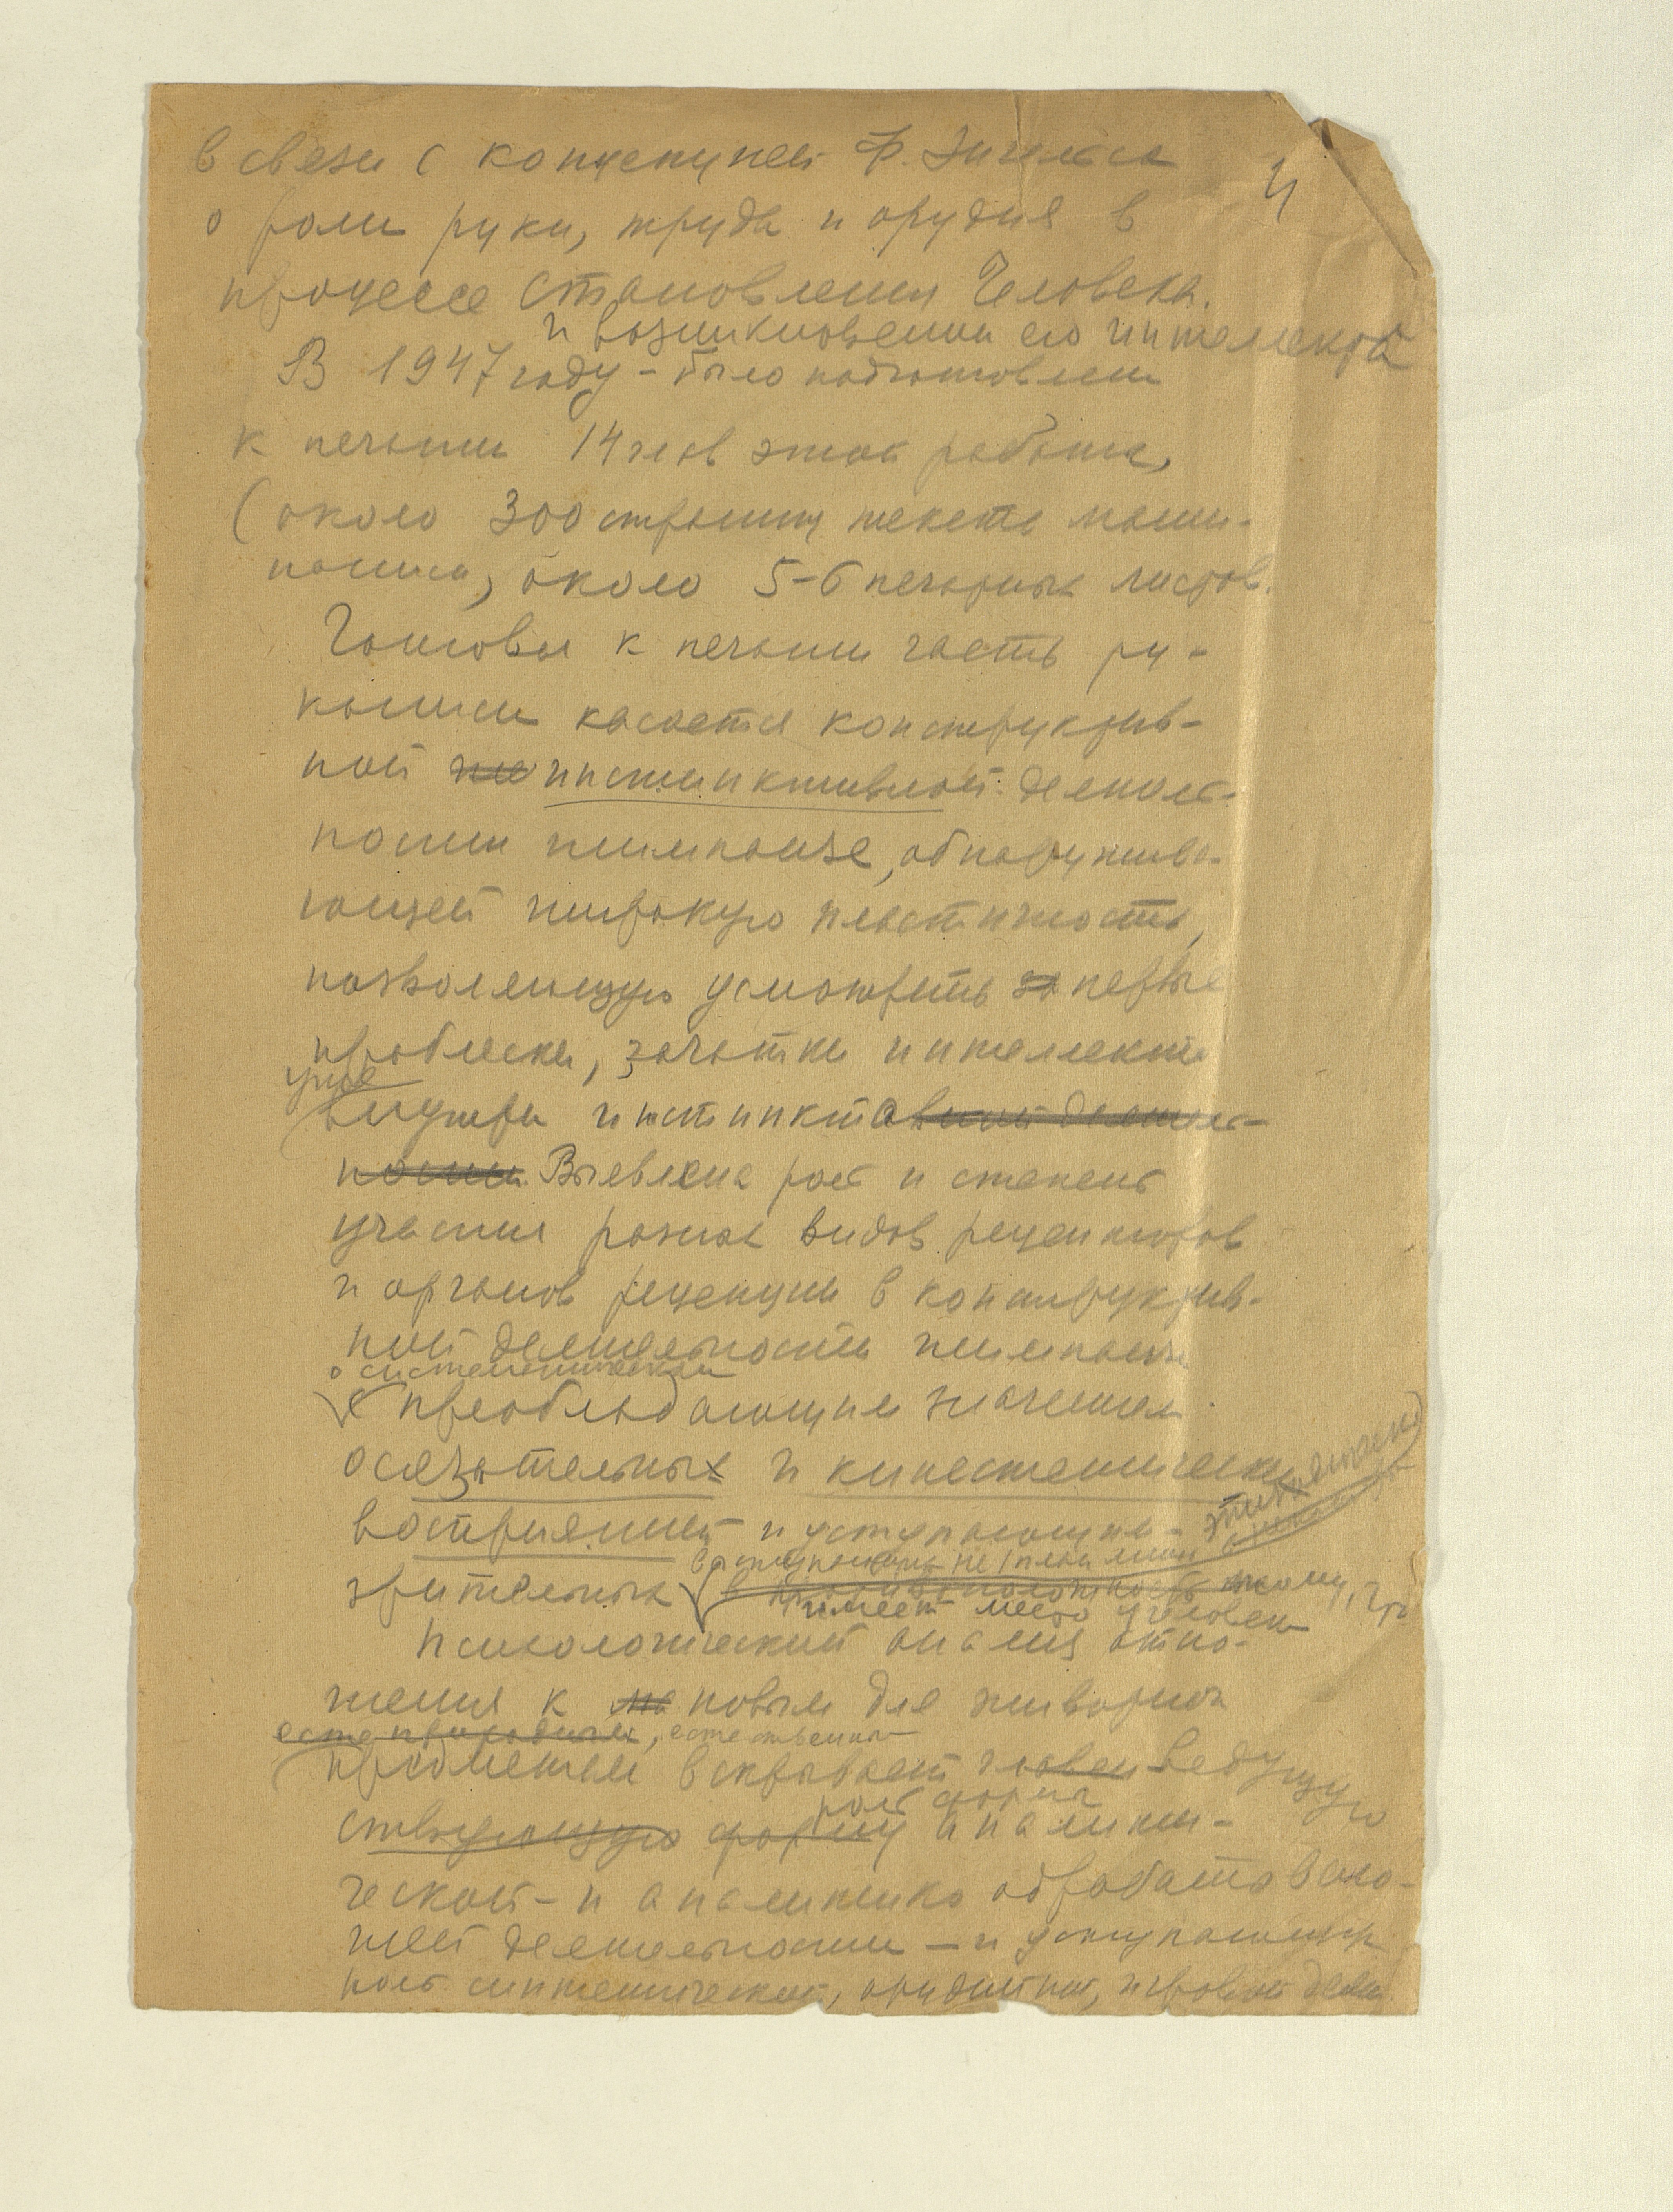 4
в связи с концепцией Ф. Энгельса
о роли руки, труда и орудия в
процессе становления Человека.
и возникновении его интеллекта
В 1947 году – было подготовлен
к печати 14 глав этой работы,
(около 300 страниц текста маши-
нописи, около 5-6 печатных листов.
Готовая к печати часть ру-
кописи касается конструктив-
ной инстинктивной деятель-
ности шимпанзе, обнаружива-
ющей широкую пластичность,
позволяющую усмотреть за первые
проблески, зачатки интеллекта
уже
внутри инстинктивной деятель-
ности Выявлена роль и степень
участия разных видов рецепторов
и органов рецепции в конструктив-
ной деятельности шимпанзе
с преобладающим значением
осязательных и кинестетических
восприятий и уступающим
зрительных
противоположность тому, что
имеет место у человека
Психологический анализ отно-
шения к новым для животных
естественно
предметам вскрывает ведущую
роль форма
ствующую форму аналити-
ческой – и аналитико обрабатываю-
щей деятельности – и уступающую
роль синтетической, орудийной, игровой